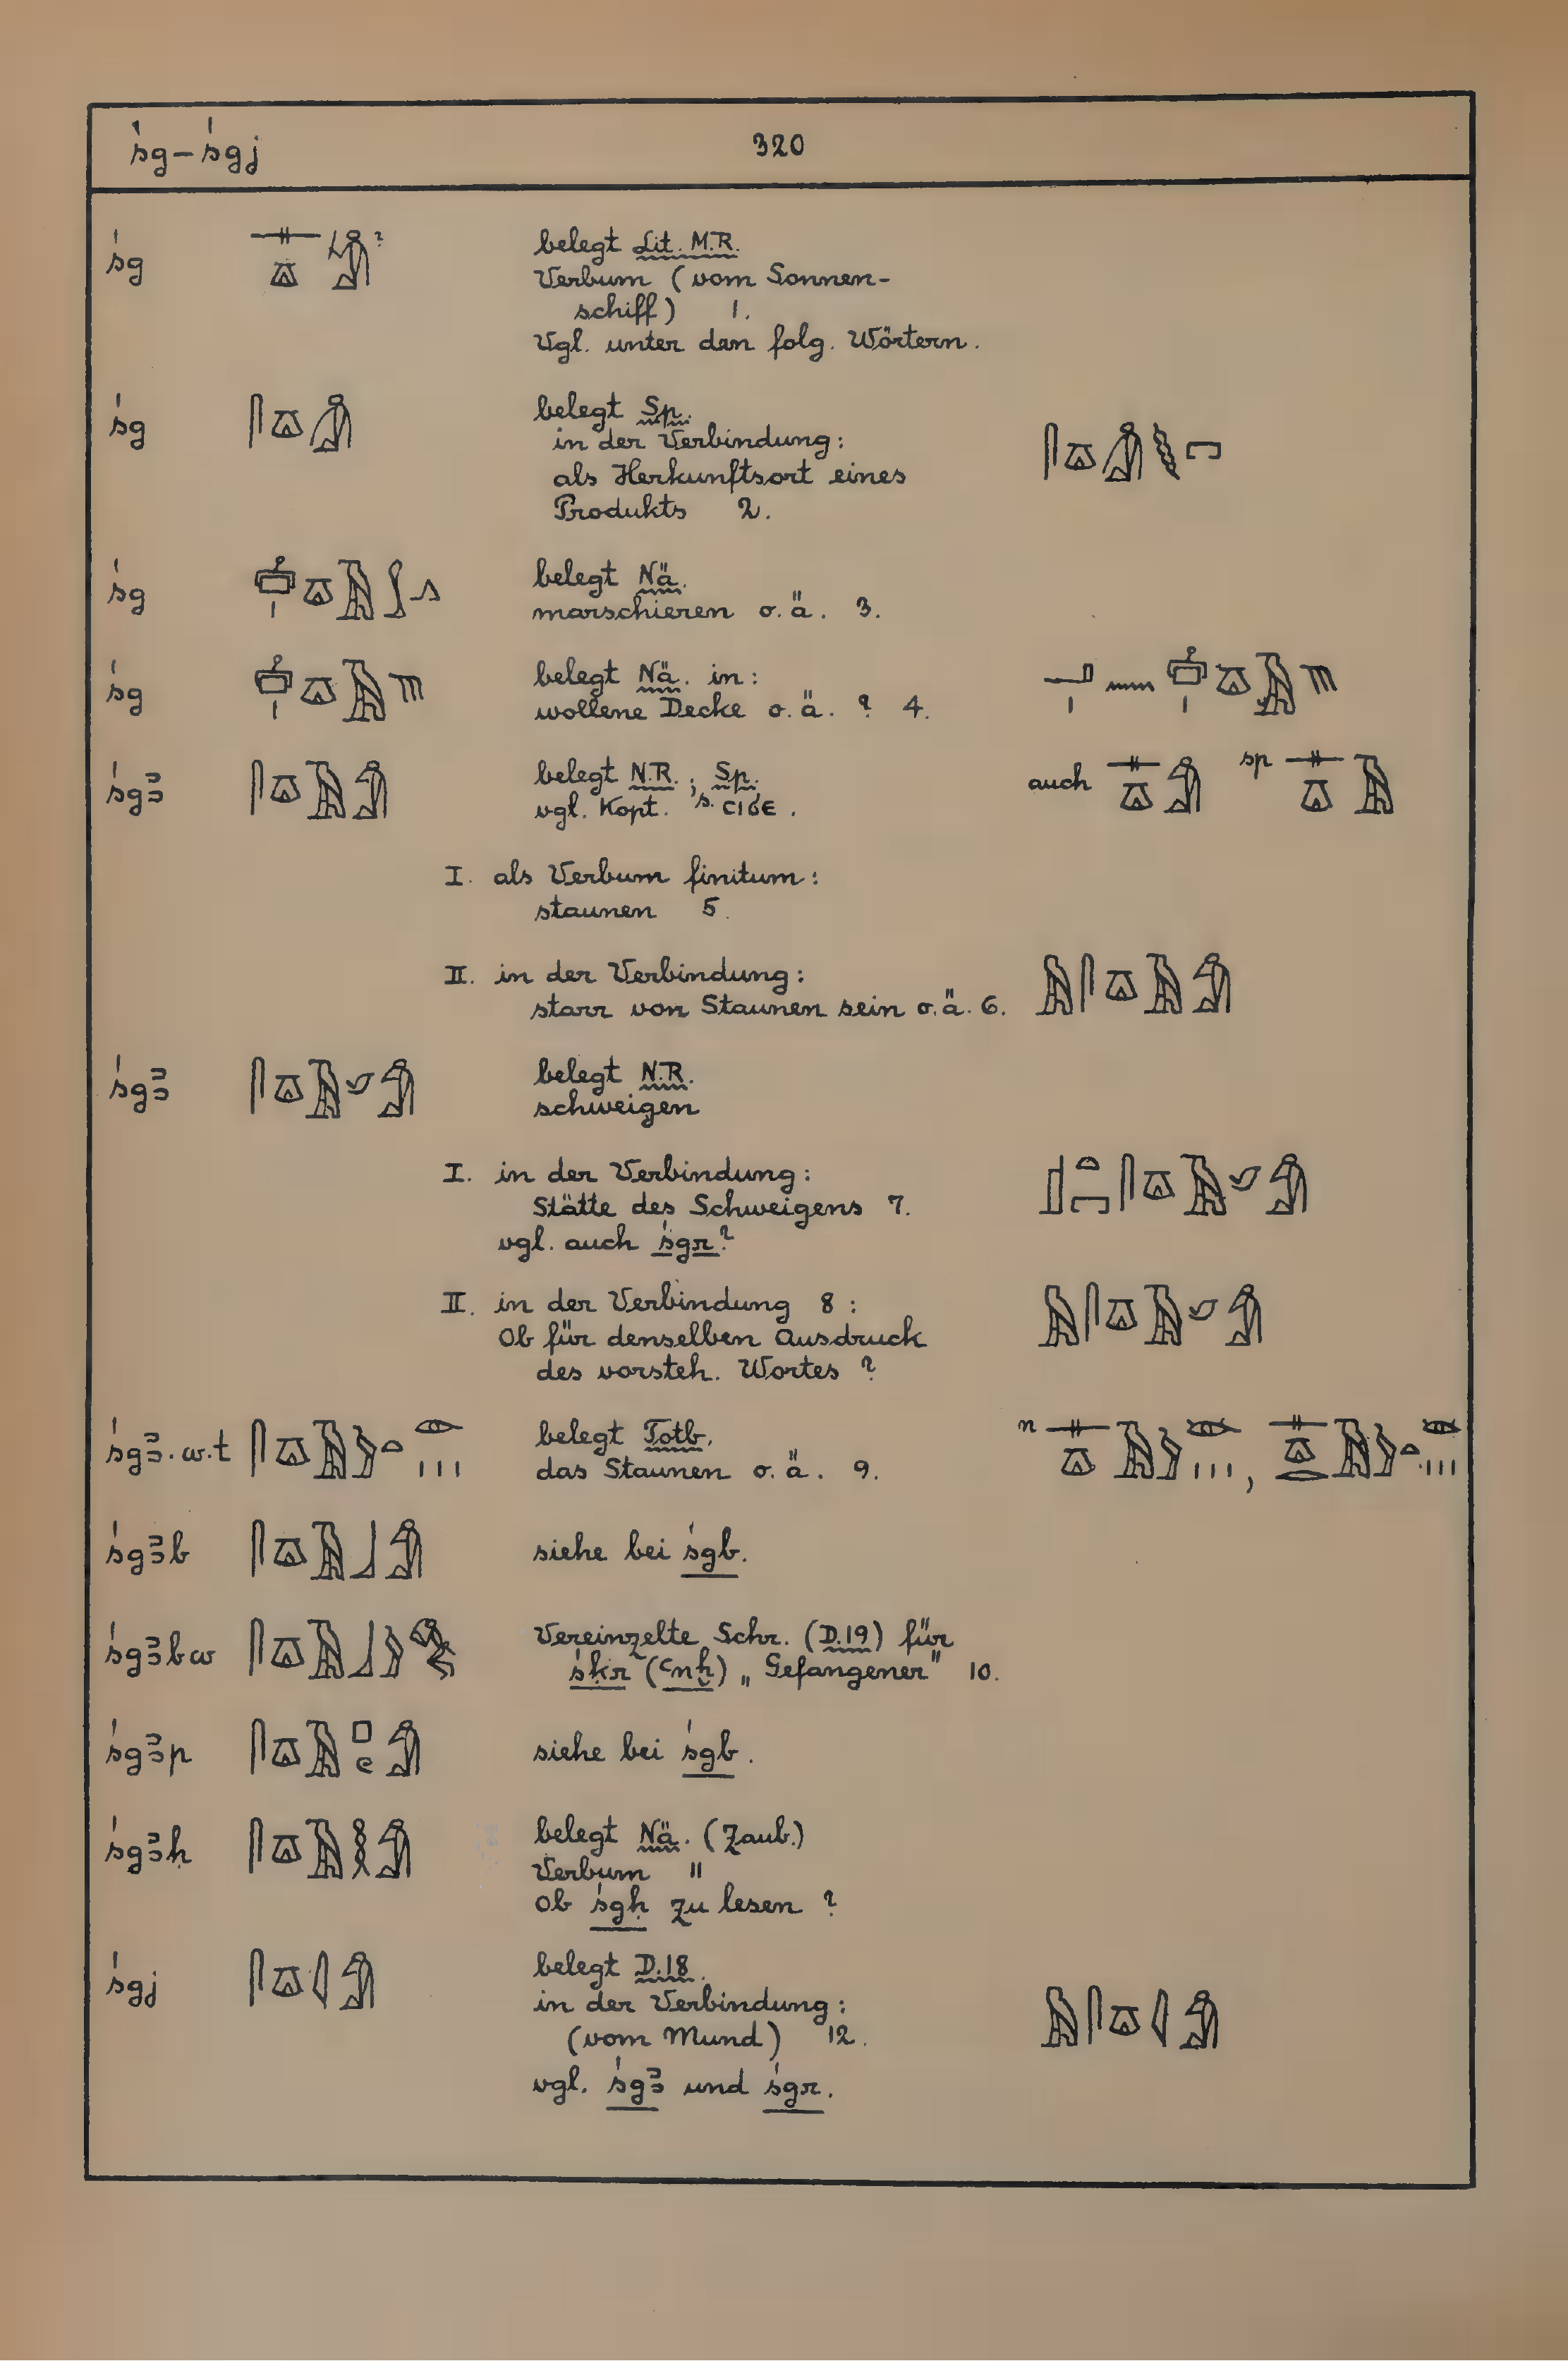 śg – śgj 320
śg belegt Lit. M.R.
Verbum (vom Sonnen-
schiff) 1.
Vgl. unter dan folg. Wörtern.
śg belegt Sp.
in der Verbindung:
als Herkunftsort eines
Produkts 2.
śg belegt Nä.
marschieren o.ä. 3.
śg belegt Nä. in:
wollene Decke o.ä. ? 4.
śgꜣ belegt N.R.; Sp. auch sp
vgl. Kopt. s. ⲥⲓϭⲉ.
I. als Verbum finitum:
staunen 5.
II. in der Verbindung:
starr von Staunen sein o.ä. 6.
śgꜣ belegt N.R.
schweigen
I. in der Verbindung:
Stätte des Schweigens 7.
vgl. auch śgr?
II. in der Verbindung 8:
Ob für denselben Ausdruck
des vorsteh. Wortes ?
śgꜣ.w.t belegt Totb. n ,
das Staunen o.ä. 9.
śgꜣb siehe bei śgb.
śgꜣbw Vereinzelte Schr. (D.19) für
śḳr (ꜥnḫ) „Gefangener" 10.
śgꜣp siehe bei śgb.
śgꜣḥ belegt Nä. (Zaub.)
Verbum 11
Ob śgḥ zu lesen ?
śgj belegt D.18.
in der Verbindung:
(vom Mund) 12.
vgl. śgꜣ und śgr.